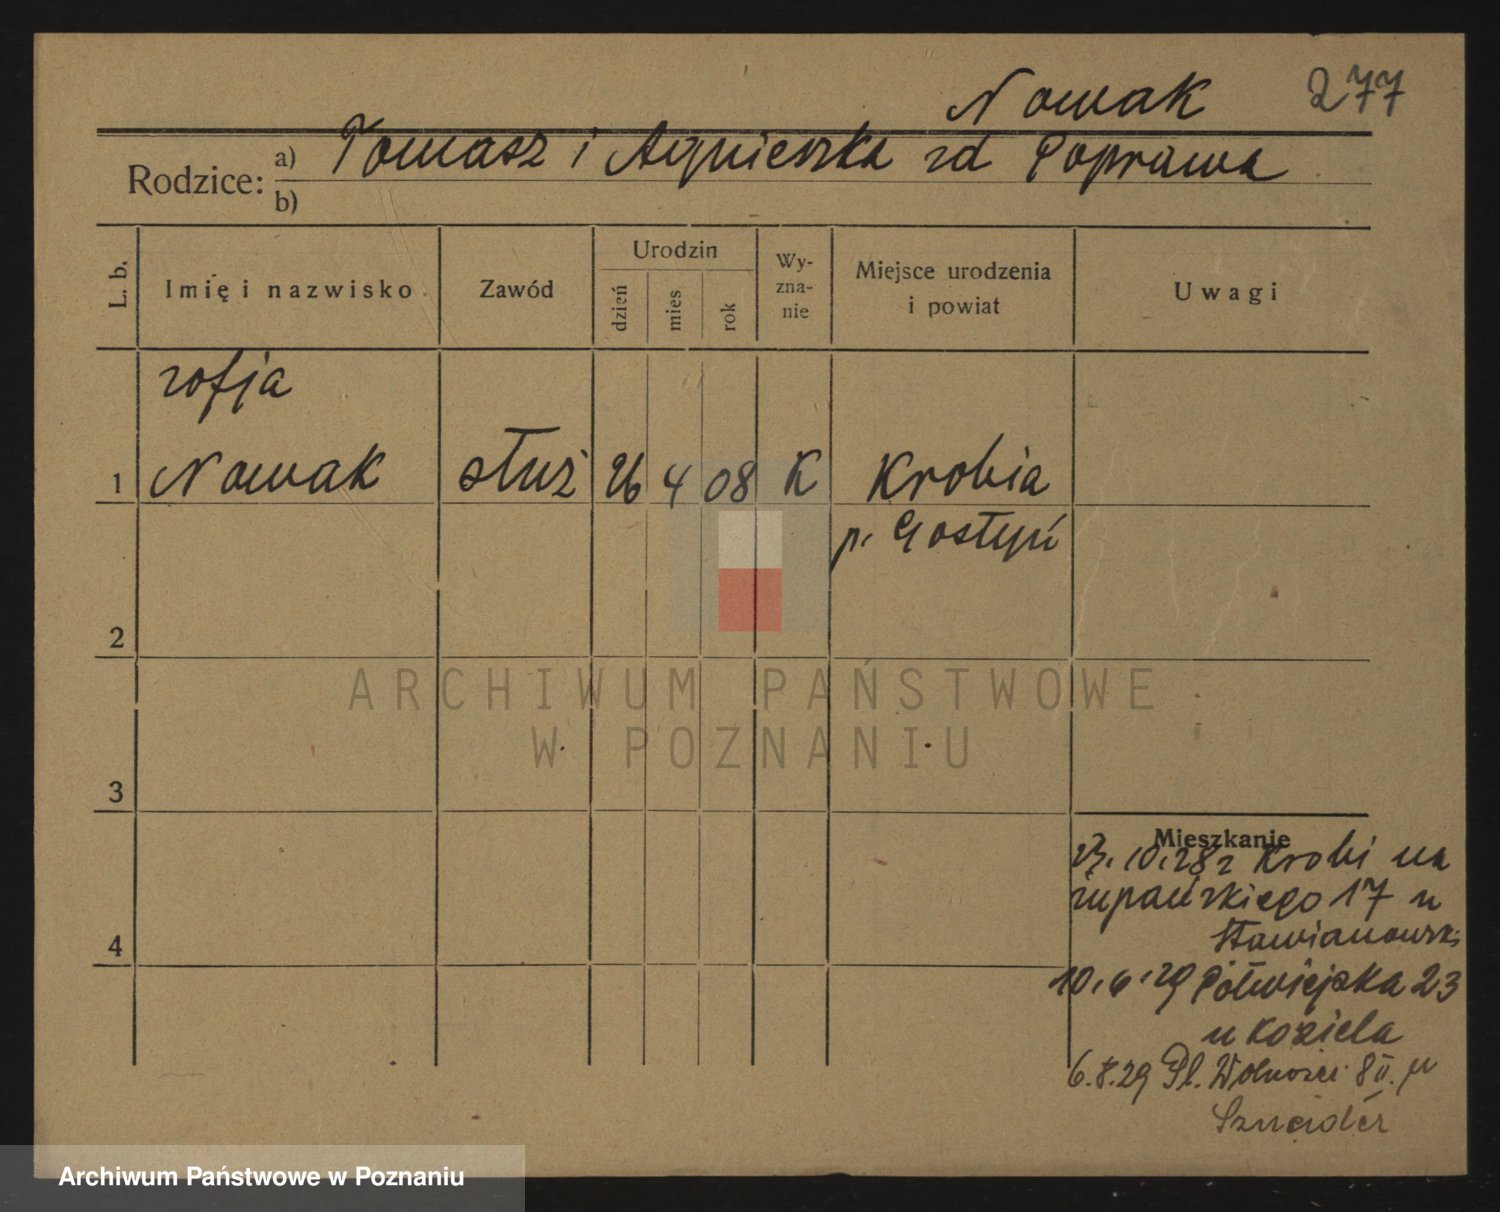 Nowak 277
Rodzice: a) Tomasz i Agnieszka zd Poprawa
b)
L. b.
Imię i nazwisko
Zawód
Urodzin
dzień
mies
rok
Wy-
zna-
nie
Miejsce urodzenia
i powiat
Uwagi
zofja
1 Nowak służ 26 4 08 K Krobia
p. Gostyń
2
ARCHIWUM PAŃSTWOWE
W POZNANIU
3
Mieszkanie
23.10.28 z Krobi na
żupańskiego 17 u
4
10.6.29 Półwiejska 23
u Koziela
6.8.29 Pl. Wolności 8 II. u
Sznaider
Archiwum Państwowe w Poznaniu